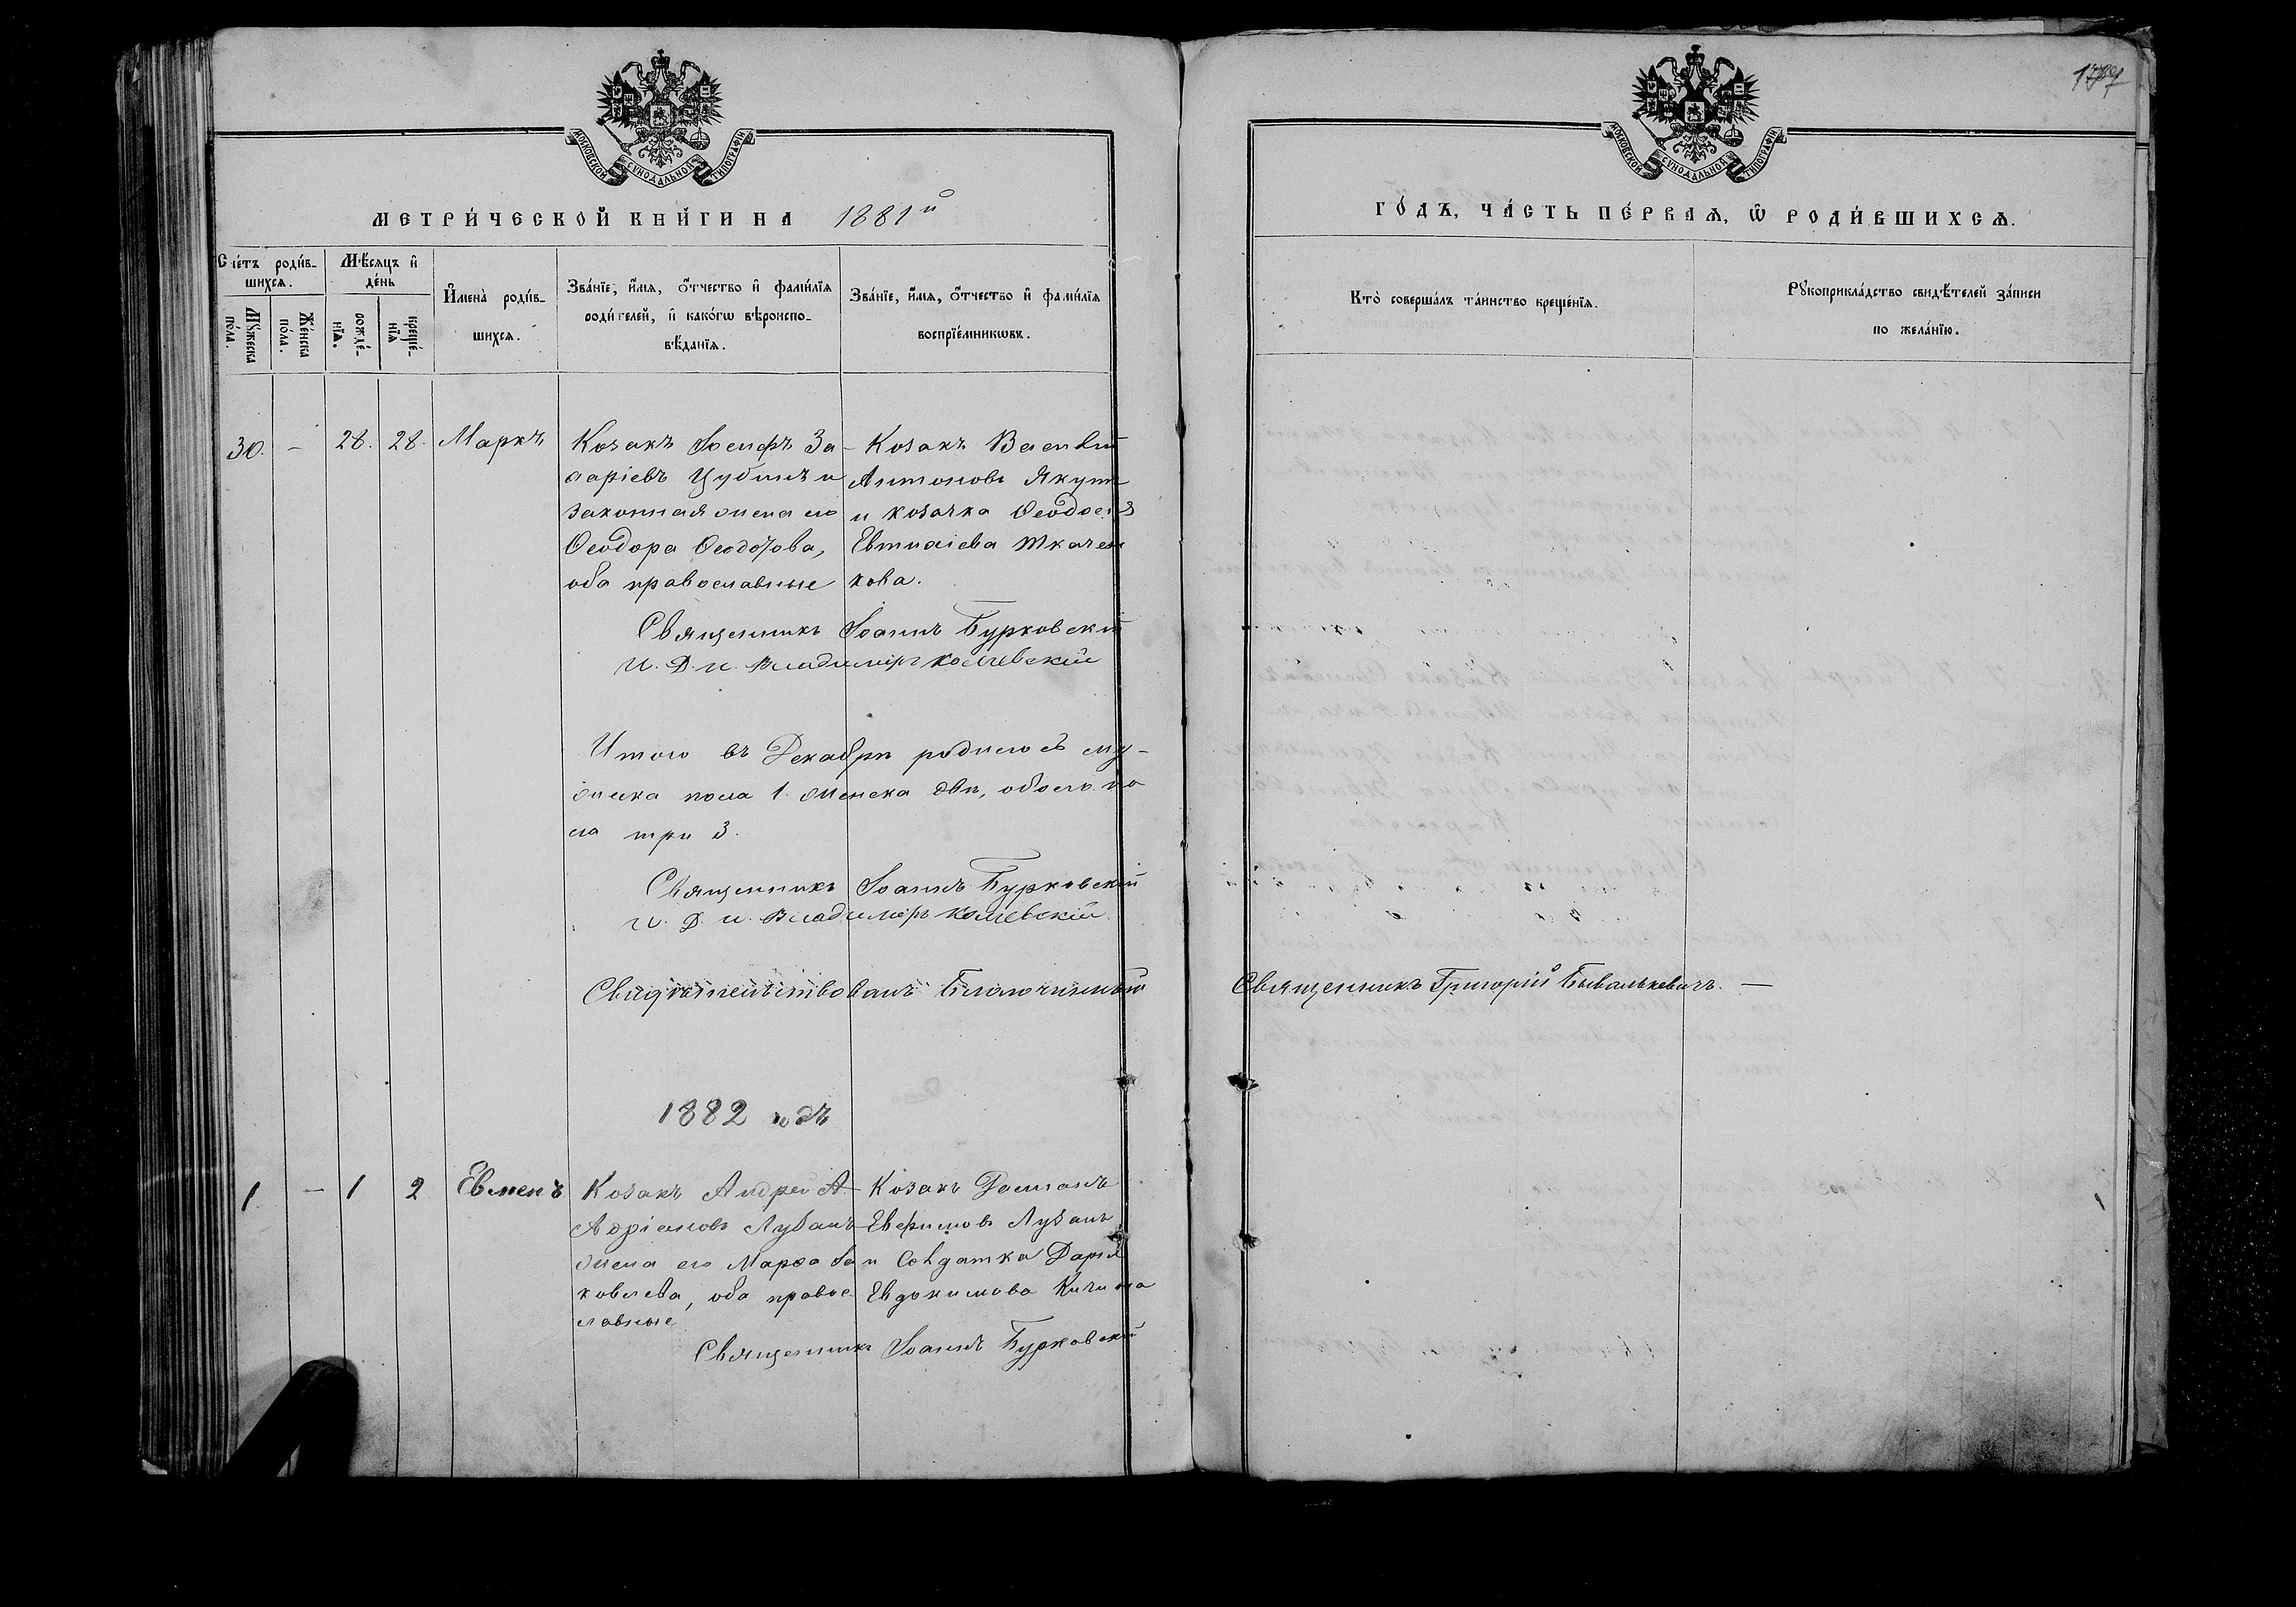 МОСКОВСКОЙ СѴНОДАЛЬНОЙ ТИПОГРАФІИ
МЕТРИ́ЧЕСКОЙ КНИ́ГИ НА 1881й
Сче́тъ роди́в-
шихсѧ.
Мѣ́сѧцъ и҆
де́нь
Мꙋ́жеска
по́ла.
Же́нска
по́ла.
рожде́-
нїѧ.
креще́-
нїѧ
И҆мена̀ роди́в-
шихсѧ.
Зва́нїе, и҆́мѧ, ѻ҆́тчество и҆ фами́лїѧ
роди́телей, и҆ како́гѡ вѣроиспо-
вѣ́данїѧ.
Зва́нїе, и҆́мѧ, ѻ҆́тчество и҆ фами́лїѧ
воспрїе́мникѡвъ.
30. - 28. 28. Маркъ
Козакъ Іосифъ За-
харіевъ Цубинъ и
законная жена его
Ѳеодора Ѳеодотова,
оба православные
Козакъ Василій
Антоновъ Якут
и козачка Ѳеодосія
Евтихіева Ткачен
кова.
Священникъ Іоаннъ Бурковскій
И. Д. п. Владиміръ
Итого въ Декабрѣ родилось му-
жеска пола 1. женска двѣ, обоего по
ла три 3.
Священникъ Іоаннъ Бурковскій
И. Д. п. Владиміръ
Свидѣтельствовалъ Благочинный
1882 годъ
1 — 1 2 Евменъ
Козакъ Андрей А-
Адріановъ Лубанъ
жена его Марѳа Яа
ковлева, оба правос
лавные
Козакъ Романъ
Евфимовъ Лубанъ
и Солдатка Дарія
Евдокимова
Священникъ Іоаннъ Бурковскій
МОСКОВСКОЙ СѴНОДАЛЬНОЙ ТИПОГРАФІИ
ГО́ДЪ, ЧА́СТЬ ПЕ́РВАѦ, Ѽ РОДИ́ВШИХСѦ.
Кто̀ соверша́лъ та́инство креще́нїѧ.
Рꙋкоприкла́дство свидѣ́телей за́писи
по жела́нїю.
Священникъ Григорій Бывалькевичъ. —